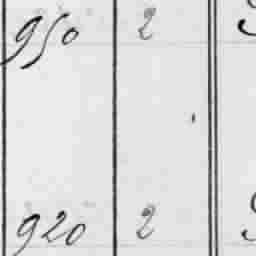 950 2
920 2